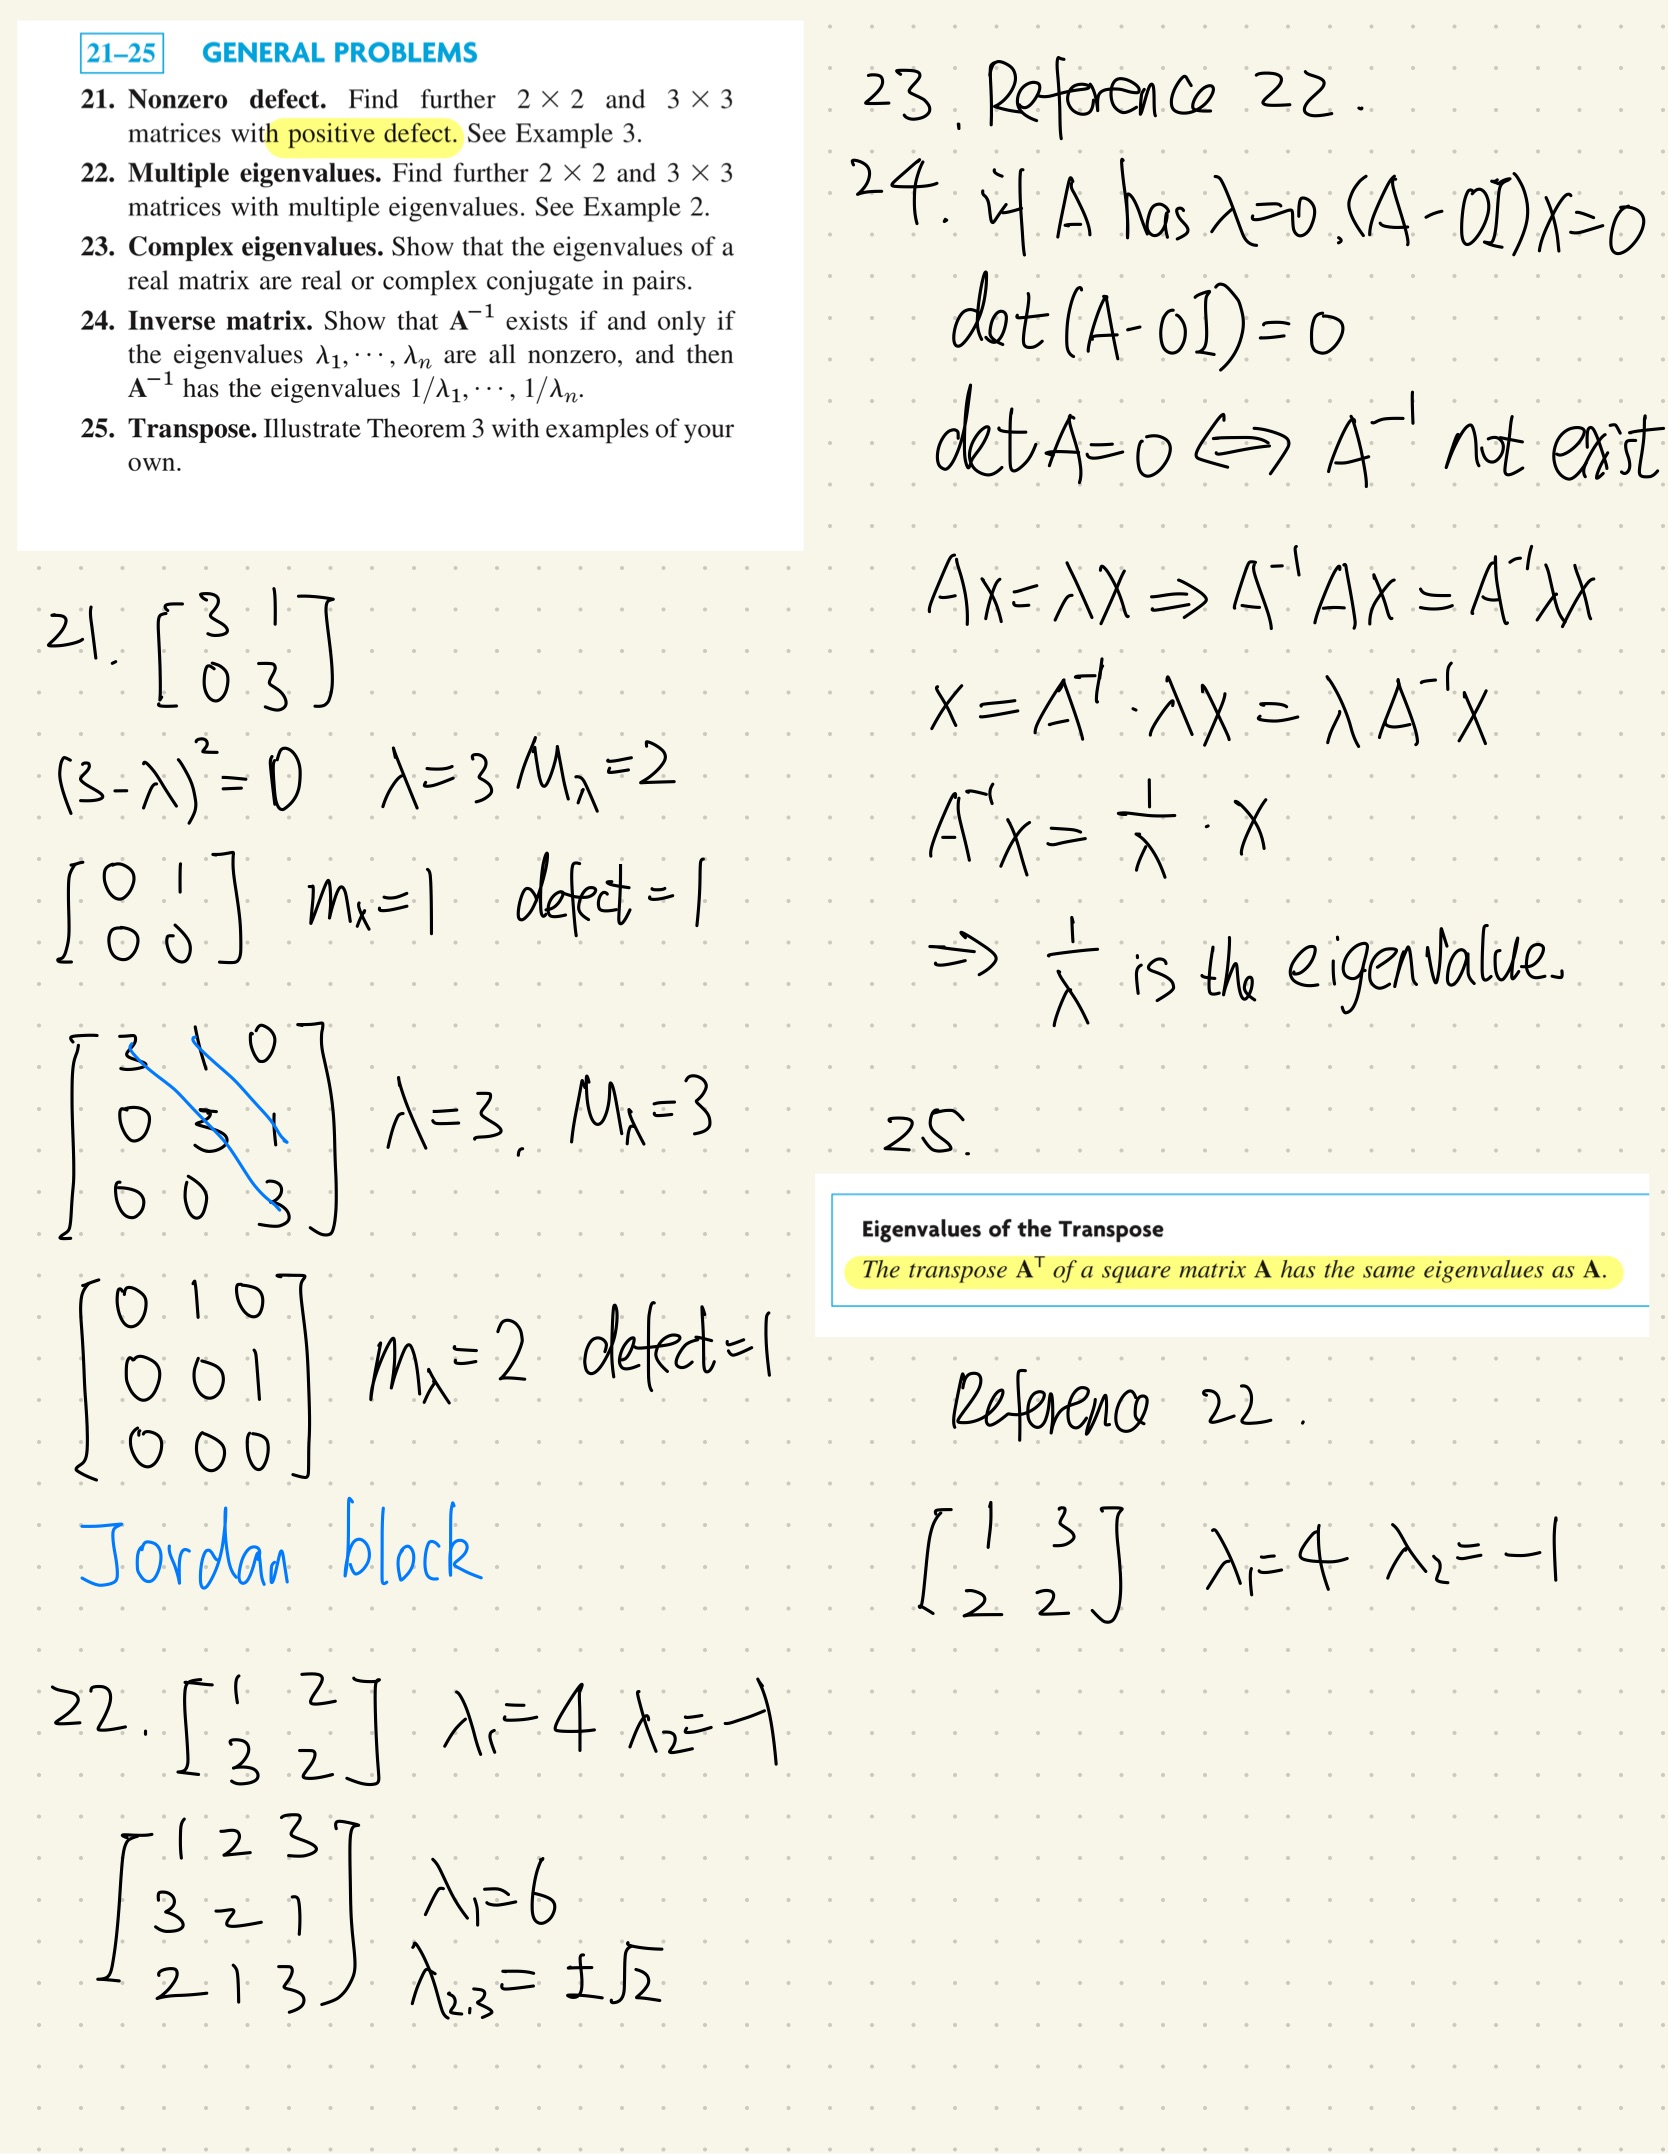 21–25 GENERAL PROBLEMS
21. Nonzero defect. Find further 2 × 2 and 3 × 3
matrices with positive defect. See Example 3.
22. Multiple eigenvalues. Find further 2 × 2 and 3 × 3
matrices with multiple eigenvalues. See Example 2.
23. Complex eigenvalues. Show that the eigenvalues of a
real matrix are real or complex conjugate in pairs.
24. Inverse matrix. Show that A⁻¹ exists if and only if
the eigenvalues λ₁, ⋯, λₙ are all nonzero, and then
A⁻¹ has the eigenvalues 1/λ₁, ⋯, 1/λₙ.
25. Transpose. Illustrate Theorem 3 with examples of your
own.
21. [3 1
0 3]
(3-λ)² = 0 λ=3 M_λ=2
[0 1
0 0] m_λ=1 defect=1
[3 1 0
0 3 1
0 0 3] λ=3. M_λ=3
[0 1 0
0 0 1
0 0 0] m_λ=2 defect=1
Jordan block
22. [1 2
3 2] λ₁=4 λ₂=-1
[1 2 3
3 2 1
2 1 3] λ₁=6
λ₂.₃= ±√2
23. Reference 22.
24. if A has λ=0. (A-0I)x=0
det(A-0I)=0
det A=0 ⟺ A⁻¹ not exist
Ax=λx ⇒ A⁻¹Ax=A⁻¹λx
x=A⁻¹·λx=λA⁻¹x
A⁻¹x=1/λ·x
⇒ 1/λ is the eigenvalue.
25.
Eigenvalues of the Transpose
The transpose Aᵀ of a square matrix A has the same eigenvalues as A.
Reference 22.
[1 3
2 2] λ₁=4 λ₂=-1